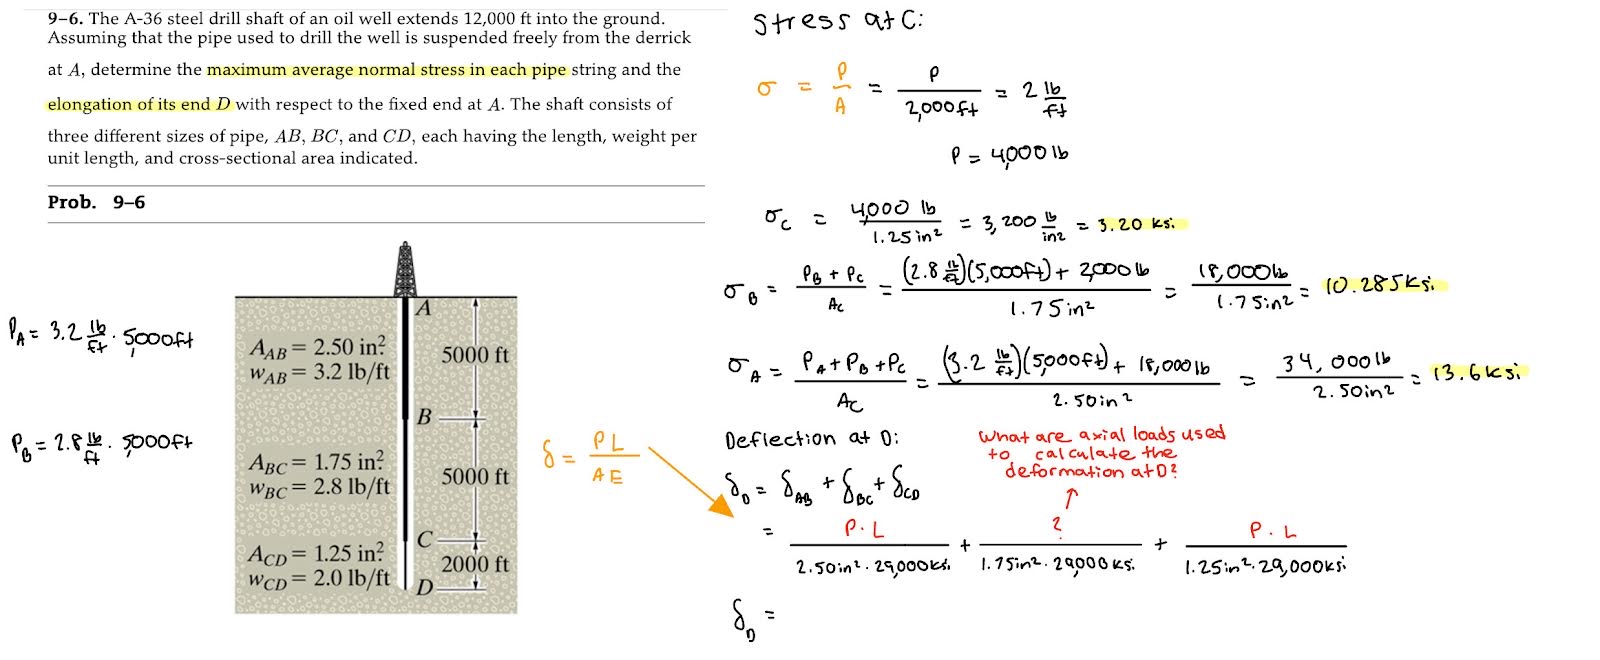 9–6. The A-36 steel drill shaft of an oil well extends 12,000 ft into the ground.
Assuming that the pipe used to drill the well is suspended freely from the derrick
at A, determine the maximum average normal stress in each pipe string and the
elongation of its end D with respect to the fixed end at A. The shaft consists of
three different sizes of pipe, AB, BC, and CD, each having the length, weight per
unit length, and cross-sectional area indicated.
Prob. 9–6
A
P_A = 3.2 lb/ft · 5,000ft
A_AB = 2.50 in.²
w_AB = 3.2 lb/ft
5000 ft
B
P_B = 2.8 lb/ft · 5,000ft
A_BC = 1.75 in.²
w_BC = 2.8 lb/ft
5000 ft
C
A_CD = 1.25 in.²
w_CD = 2.0 lb/ft
2000 ft
D
δ = PL / AE
Stress at C:
σ = P/A = P / 2,000ft = 2 lb/ft
P = 4,000 lb
σ_C = 4,000 lb / 1.25 in² = 3,200 lb/in² = 3.20 ksi
σ_B = P_B + P_C / A_C = (2.8 lb/ft)(5,000ft) + 2,000 lb / 1.75 in² = 18,000lb / 1.75in² = 10.285ksi
σ_A = P_A + P_B + P_C / A_C = (3.2 lb/ft)(5,000ft) + 18,000 lb / 2.50in² = 34,000 lb / 2.50in² = 13.6ksi
Deflection at D:
What are axial loads used
to calculate the
deformation at D?
δ_D = δ_AB + δ_BC + δ_CD
= P·L / 2.50in²·29,000ksi + ? / 1.75in²·29,000ksi + P·L / 1.25in²·29,000ksi
δ_D =